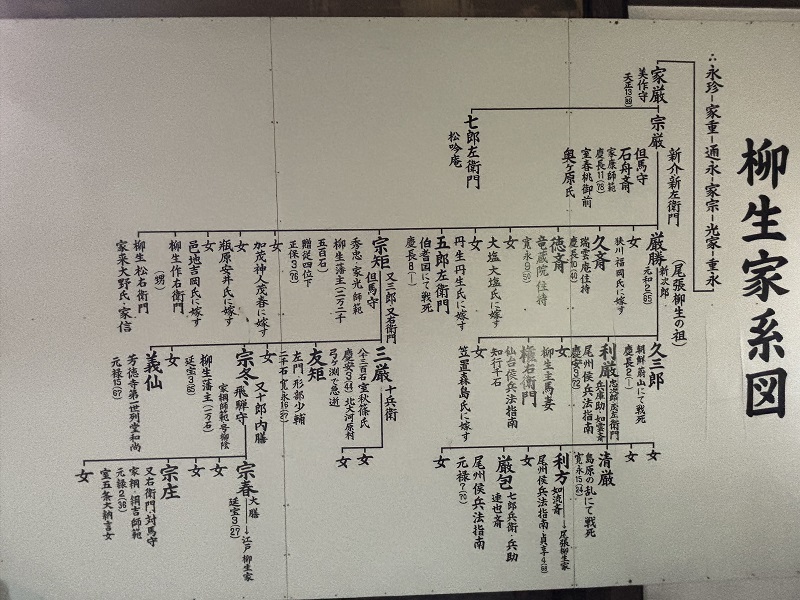 柳生家系図
∴永珍－家重－通永－家宗－光家－重永
家厳
美作守
天正13(89)
宗厳
新介新左衛門
但馬守
石舟斎
家康師範
慶長11(78)
室春桃御前
奥ヶ原氏
七郎左衛門
松吟庵
厳勝
新次郎
元和2(65)
(尾張柳生の祖)
女
狭川・福岡氏に嫁す
久斎
瑞雲庵住持
徳斎
竜蔵院住持
寛永9(50)
女
大塩大塩氏に嫁す
女
丹生丹生氏に嫁す
五郎左衛門
伯耆国にて戦死
慶長8(ー)
宗矩
又三郎又右衛門
但馬守
秀忠 家光師範
柳生藩主(一万二千
五百石)
贈従四位下
正保3(76)
女
加茂神人茂春に嫁す
女
瓶原安井氏に嫁す
女
邑地吉岡氏に嫁す
柳生作右衛門
(甥)
柳生松右衛門
家来大野氏・家信
久三郎
朝鮮蔚山にて戦死
慶長2(ー)
利厳
兵庫助・如雲斎
尾州侯兵法指南
慶安3(72)
女
柳生主馬妻
権右衛門
仙台侯兵法指南
知行千石
女
笠置森島氏に嫁す
三厳
十兵衛
八千三百石室秋篠氏
慶安3(44)北大河原村
弓ヶ渕で急逝
友矩
左門 刑部少輔
二千石寛永16(27)
女
宗冬
又十郎・内膳
飛騨守
家綱師範号柳陰
柳生藩主(一万石)
延宝3(63)
女
義仙
芳徳寺第一世列堂和尚
元禄15(67)
女
女
清厳
島原の乱にて戦死
寛永15(24)
利方
如流斎
→尾張柳生家
尾州侯兵法指南・貞享4(69)
女
厳包
七郎兵衛・兵助
連也斎
尾州侯兵法指南
元禄7(70)
女
女
女
宗春
大膳
延宝3(27)
→江戸柳生家
女
女
宗庄
又右衛門対馬守
家綱 綱吉師範
元禄2(36)
室五条大納言女
女